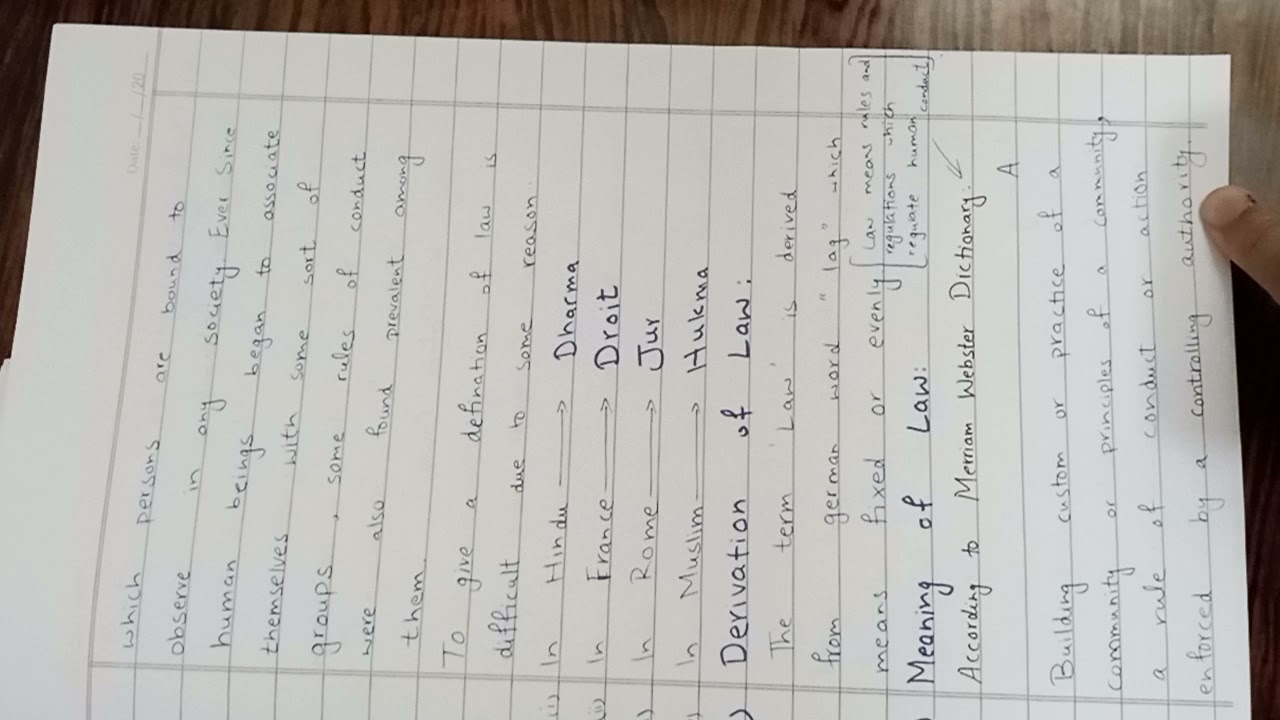 Date __/__/20
which persons are bound to
observe in any society Ever Since
human beings began to associate
themselves with some sort of
groups, some rules of conduct
were also found prevalent among
them
To give a defination of law is
difficult due to some reason.
i) In Hindu → Dharma
ii) In France → Droit
) In Rome → Jur
) In Muslim → Hukma
) Derivation of Law:
The term 'Law' is derived
from german word "lag" which
means fixed or evenly [Law means rules and
regulations which
reguate human conduct].
) Meaning of Law:
According to Merriam Webster Dictionary:
A
Building custom or practice of a
community or principles of a community,
a rule of conduct or action
enforced by a controlling authority.